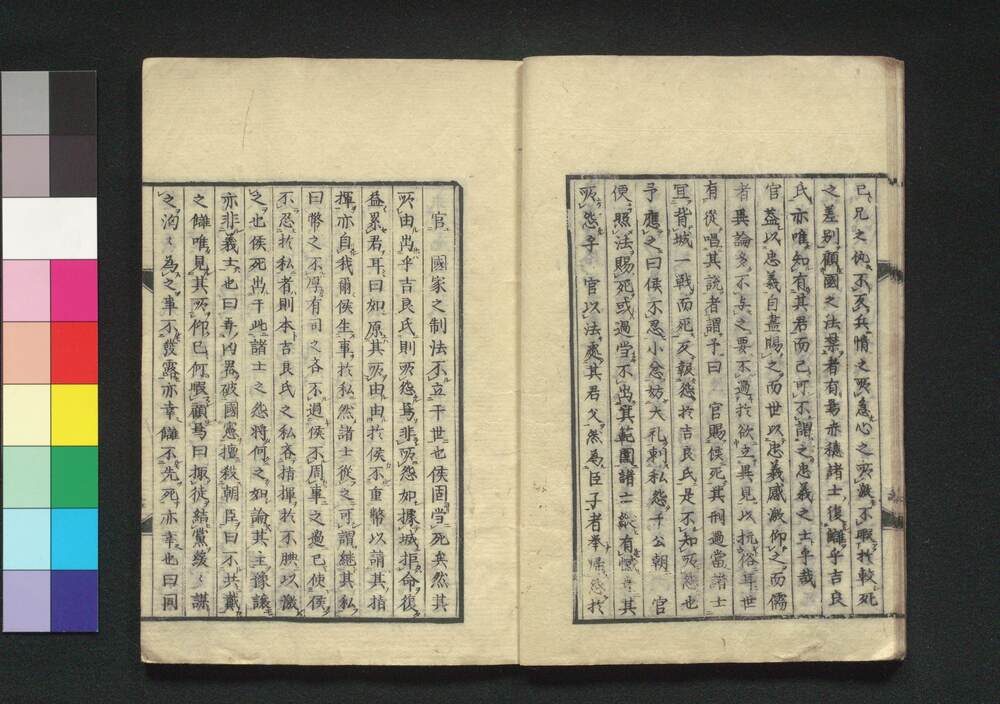 已兄之仇不反兵情之所急心之所激不暇挍較死
之差别顧國之法禁者有焉赤穗諸士復讎乎吉良
氏亦唯知有其君而已可不謂之忠義之士乎哉
官益以忠義自盡賜之而世以忠義感激仰之而儒
者異論多不与之要不過於欲立異見以抗俗耳世
有從唱其説者謂予曰　官賜侯死其刑過當諸士
宜背城一戰而死反報怨於吉良氏是不知所怨也
予應之曰侯不忍小忿妨大礼刺私怨于公朝　官
便照法賜死或過當不出其範圍諸士縱有憾其
所怨乎　官以法處其君父然為臣子者舉怨於
官　國家之制法不立于世也侯固當死矣然其
所由出乎吉良氏則所怨焉非所怨如據城拒命復
益累君耳曰如原其所由由於侯不重幣以請其指
揮亦自我爾侯生事於私然諸士從之可謂繼其私
曰幣之不厚有司之吝不過侯不周事之過已使侯
不忍於私者則本吉良氏之私吝指揮於不腆以激
之也侯死出于此諸士之怨將何之如論其主豫讓
亦非義士也曰吾内累破國憲擅殺朝臣曰不共戴
之讎唯見其所仰已何暇顧焉曰掫徒結黨發々謀
之洶々為之事不發露亦幸讎不先死亦幸也曰同